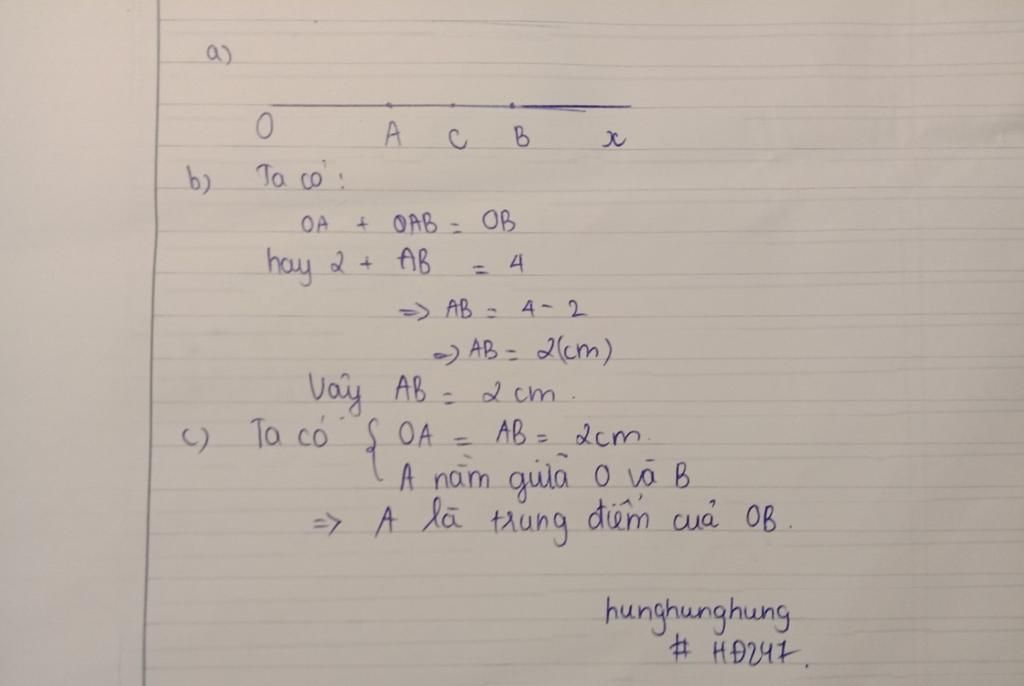 a)
O A C B x
b) Ta có:
OA + OAB = OB
hay 2 + AB = 4
=> AB = 4 - 2
=> AB = 2(cm)
Vậy AB = 2 cm.
c) Ta có { OA = AB = 2cm.
A nằm giữa O và B
=> A là trung điểm của OB.
hunghunghung
# HĐ247.